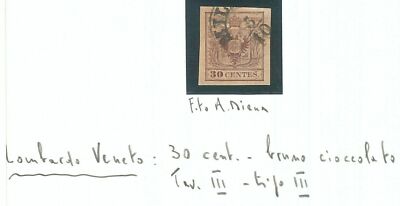 MIL
30 CENTES.
F.to A. Diena
Lombardo Veneto: 30 cent. - bruno cioccolato
Tav. III - tipo III